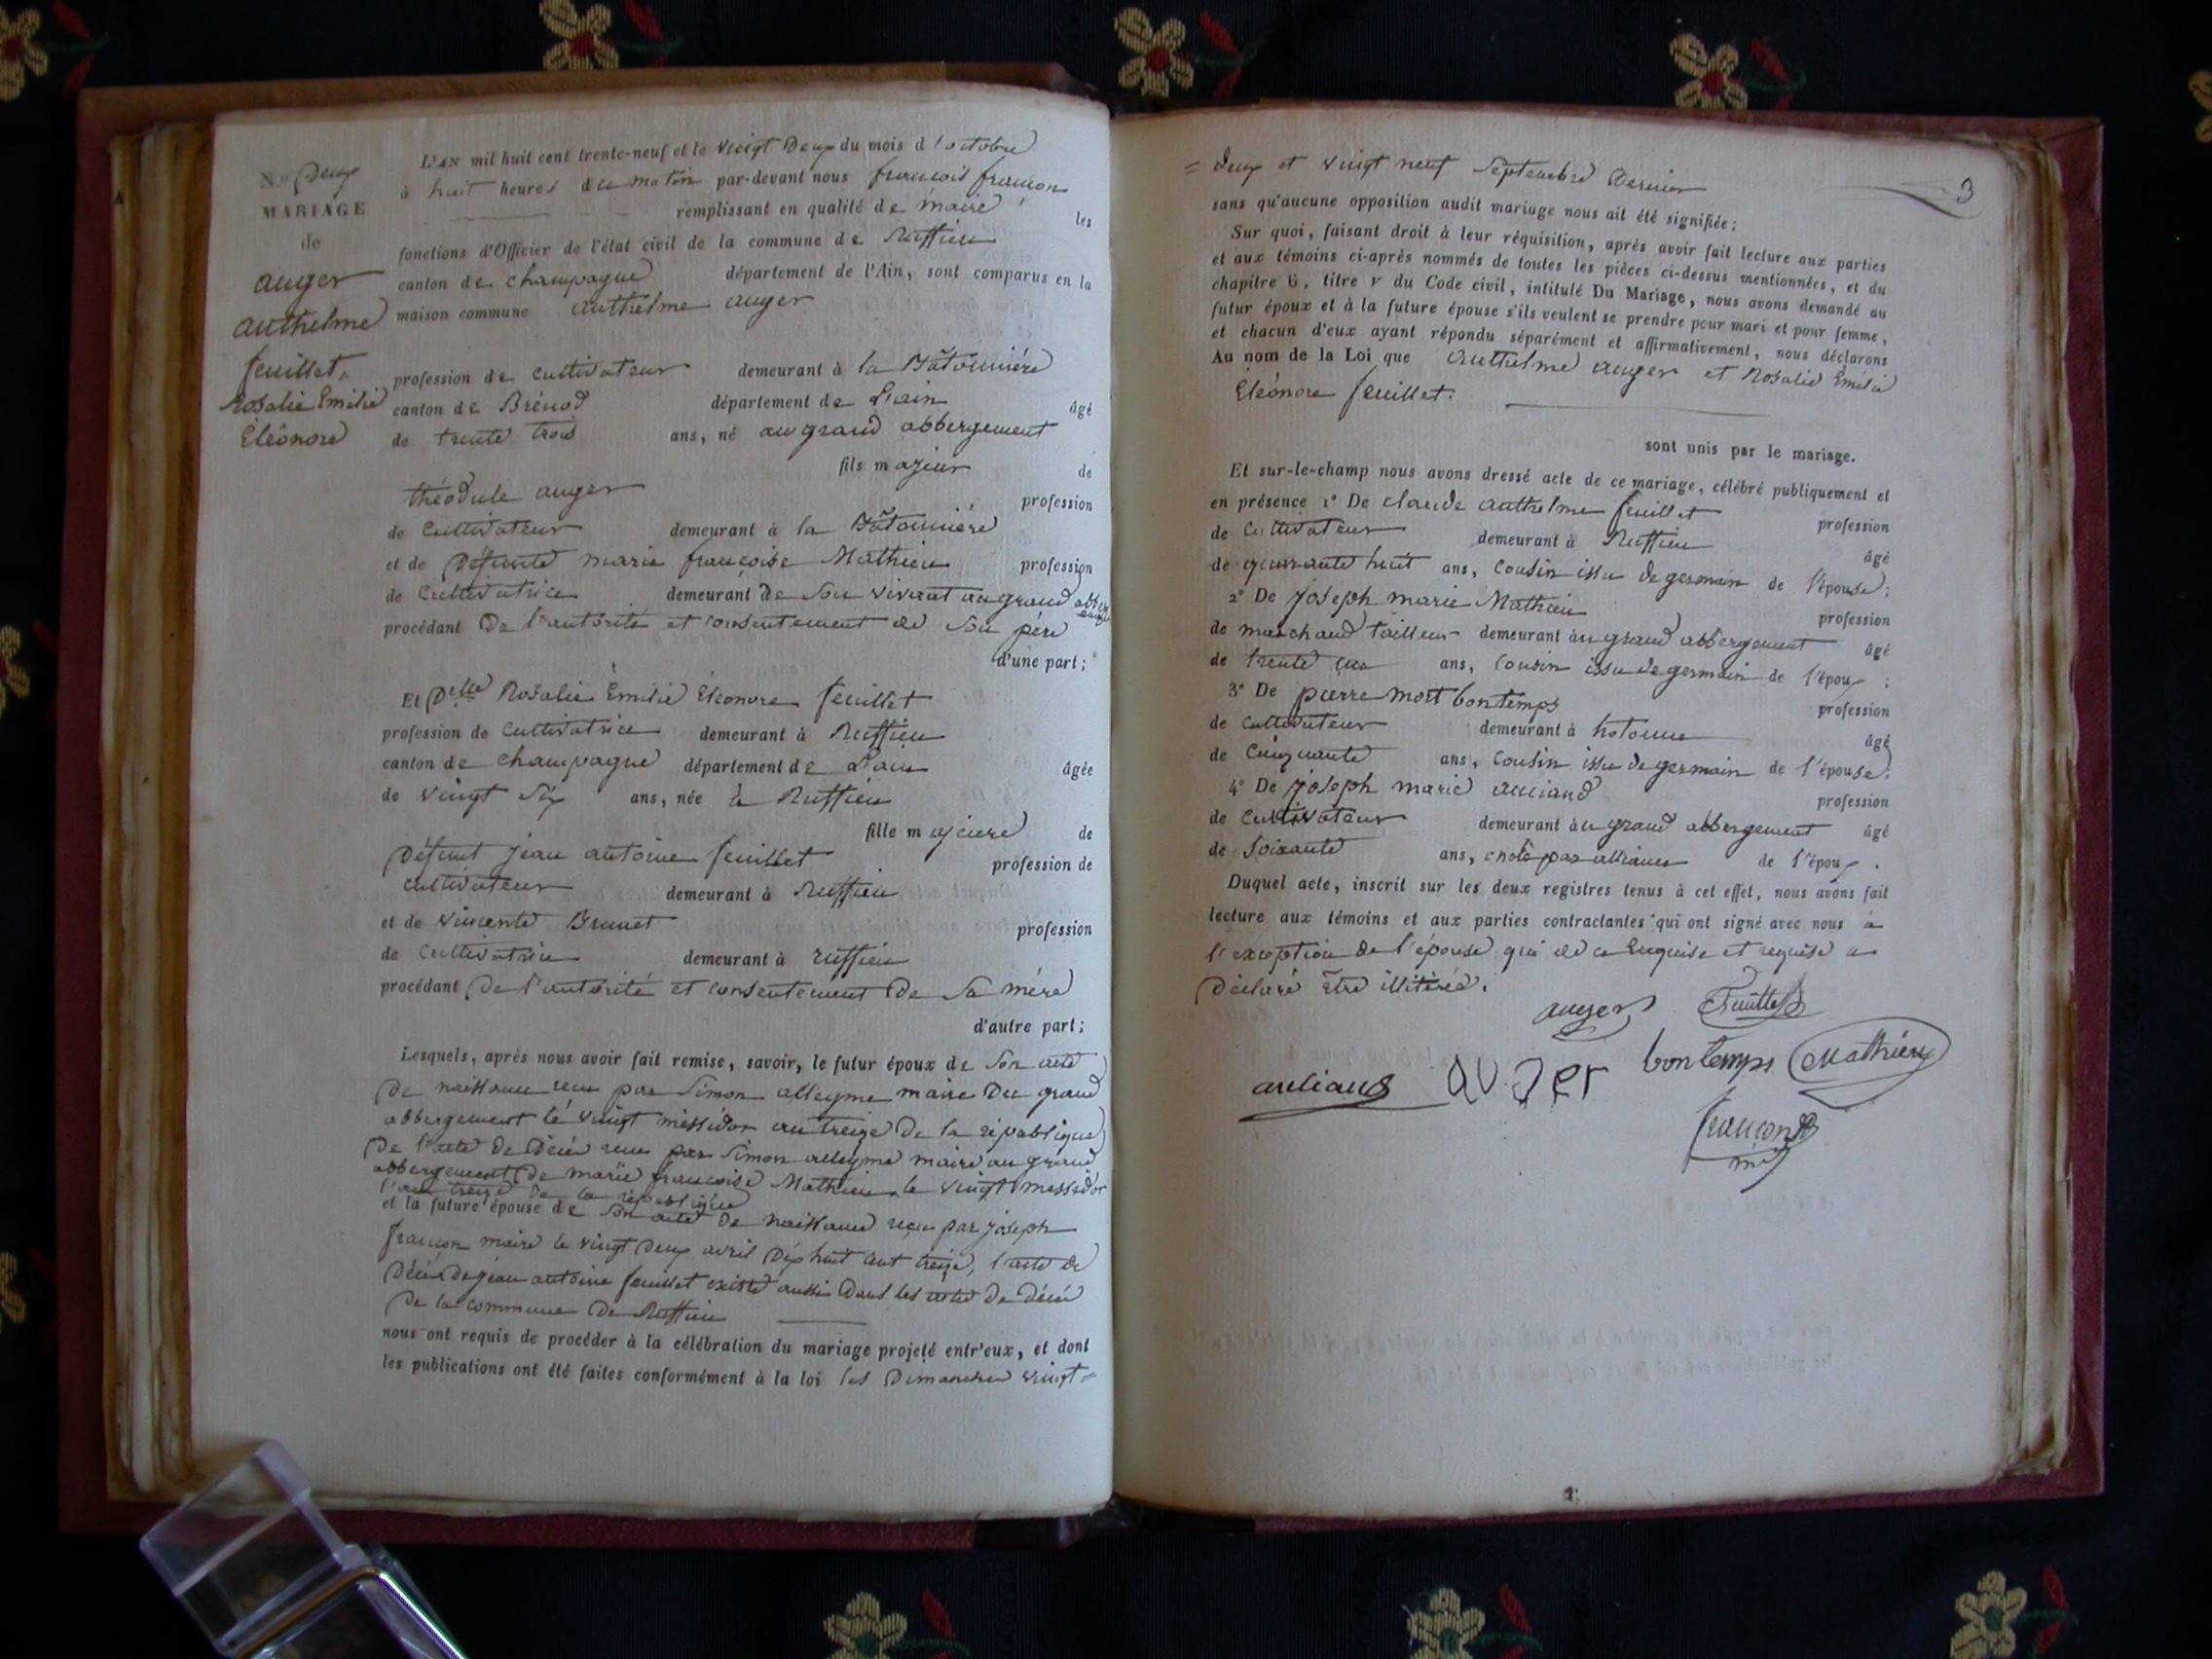 N.º Deux
MARIAGE
de
auger
Anthelme
feuillet
Rosalie Emilie
Éléonore
L'AN mil huit cent trente-neuf et le vingt Deux du mois d'octobre
à huit heures du matin par-devant nous françois françon
remplissant en qualité de maire les
fonctions d'Officier de l'état civil de la commune de Ruffieu
canton de champagne département de l'Ain, sont comparus en la
maison commune Anthelme auger
profession de cultivateur demeurant à la
canton de Brénod département de L'ain âgé
de trente trois ans, né au grand abbergement
fils majeur de
théodule auger profession
de Cultivateur demeurant à la
et de Défunte marie françoise Mathieu profession
de Cultivatrice demeurant de son vivant au grand abbergement
procédant De l'autorité et consentement de son père
d'une part;
Et Delle Rosalie Émilie Éléonore feuillet
profession de Cultivatrice demeurant à Ruffieu
canton de champagne département de L'ain âgée
de vingt six ans, née à Ruffieu
fille majeure de
Défunt jean antoine feuillet profession de
cultivateur demeurant à Ruffieu
et de vincente Brunet profession
de Cultivatrice demeurant à ruffieu
procédant De l'autorité et consentement De sa mère
d'autre part;
Lesquels, après nous avoir fait remise, savoir, le futur époux de son acte
De naissance reçu par Simon alleyme maire Du grand
abbergement le vingt messidor an treize De la république
De l'acte de Décé reçu par Simon alleyme maire au grand
abbergement De marie françoise Mathieu le vingt messidor
l'an treize De la république
et la future épouse de son acte De naissance reçu par joseph
françon maire le vingt Deux avril Dix huit cent treize, l'acte de
Décé De jean antoine feuillet existe aussi Dans les actes De Décé
De la commune De Ruffieu
nous ont requis de procéder à la célébration du mariage projeté entr'eux, et dont
les publications ont été faites conformément à la loi les Dimanches vingt =
3
= deux et vingt neuf Septembre Dernier
sans qu'aucune opposition audit mariage nous ait été signifiée;
Sur quoi, faisant droit à leur réquisition, après avoir fait lecture aux parties
et aux témoins ci-après nommés de toutes les pièces ci-dessus mentionnées, et du
chapitre 6, titre V du Code civil, intitulé Du Mariage, nous avons demandé au
futur époux et à la future épouse s'ils veulent se prendre pour mari et pour femme,
et chacun d'eux ayant répondu séparément et affirmativement, nous déclarons
Au nom de la Loi que Anthelme auger et Rosalie Emilie
Eléonore feuillet.
sont unis par le mariage.
Et sur-le-champ nous avons dressé acte de ce mariage, célébré publiquement et
en présence 1º De claude anthelme feuillet profession
de Cultivateur demeurant à Ruffieu âgé
de quarante huit ans, Cousin issu de germain de l'épouse;
2º De joseph marie Mathieu profession
de marchand tailleur demeurant au grand abbergement âgé
de trente ans, cousin issu de germain de l'époux;
3º De pierre mort bontemps profession
de Cultivateur demeurant à hotonne âgé
de Cinquante ans, Cousin issu de germain de l'épouse;
4º De joseph marie anciand profession
de Cultivateur demeurant au grand abbergement âgé
de Soixante ans, par alliance de l'époux.
Duquel acte, inscrit sur les deux registres tenus à cet effet, nous avons fait
lecture aux témoins et aux parties contractantes qui ont signé avec nous à
l'exception De l'épouse qui de ce Enquise et requise a
Déclaré être illitérée.
auger Feuillet
anciand auger bontemps Mathieu
françon